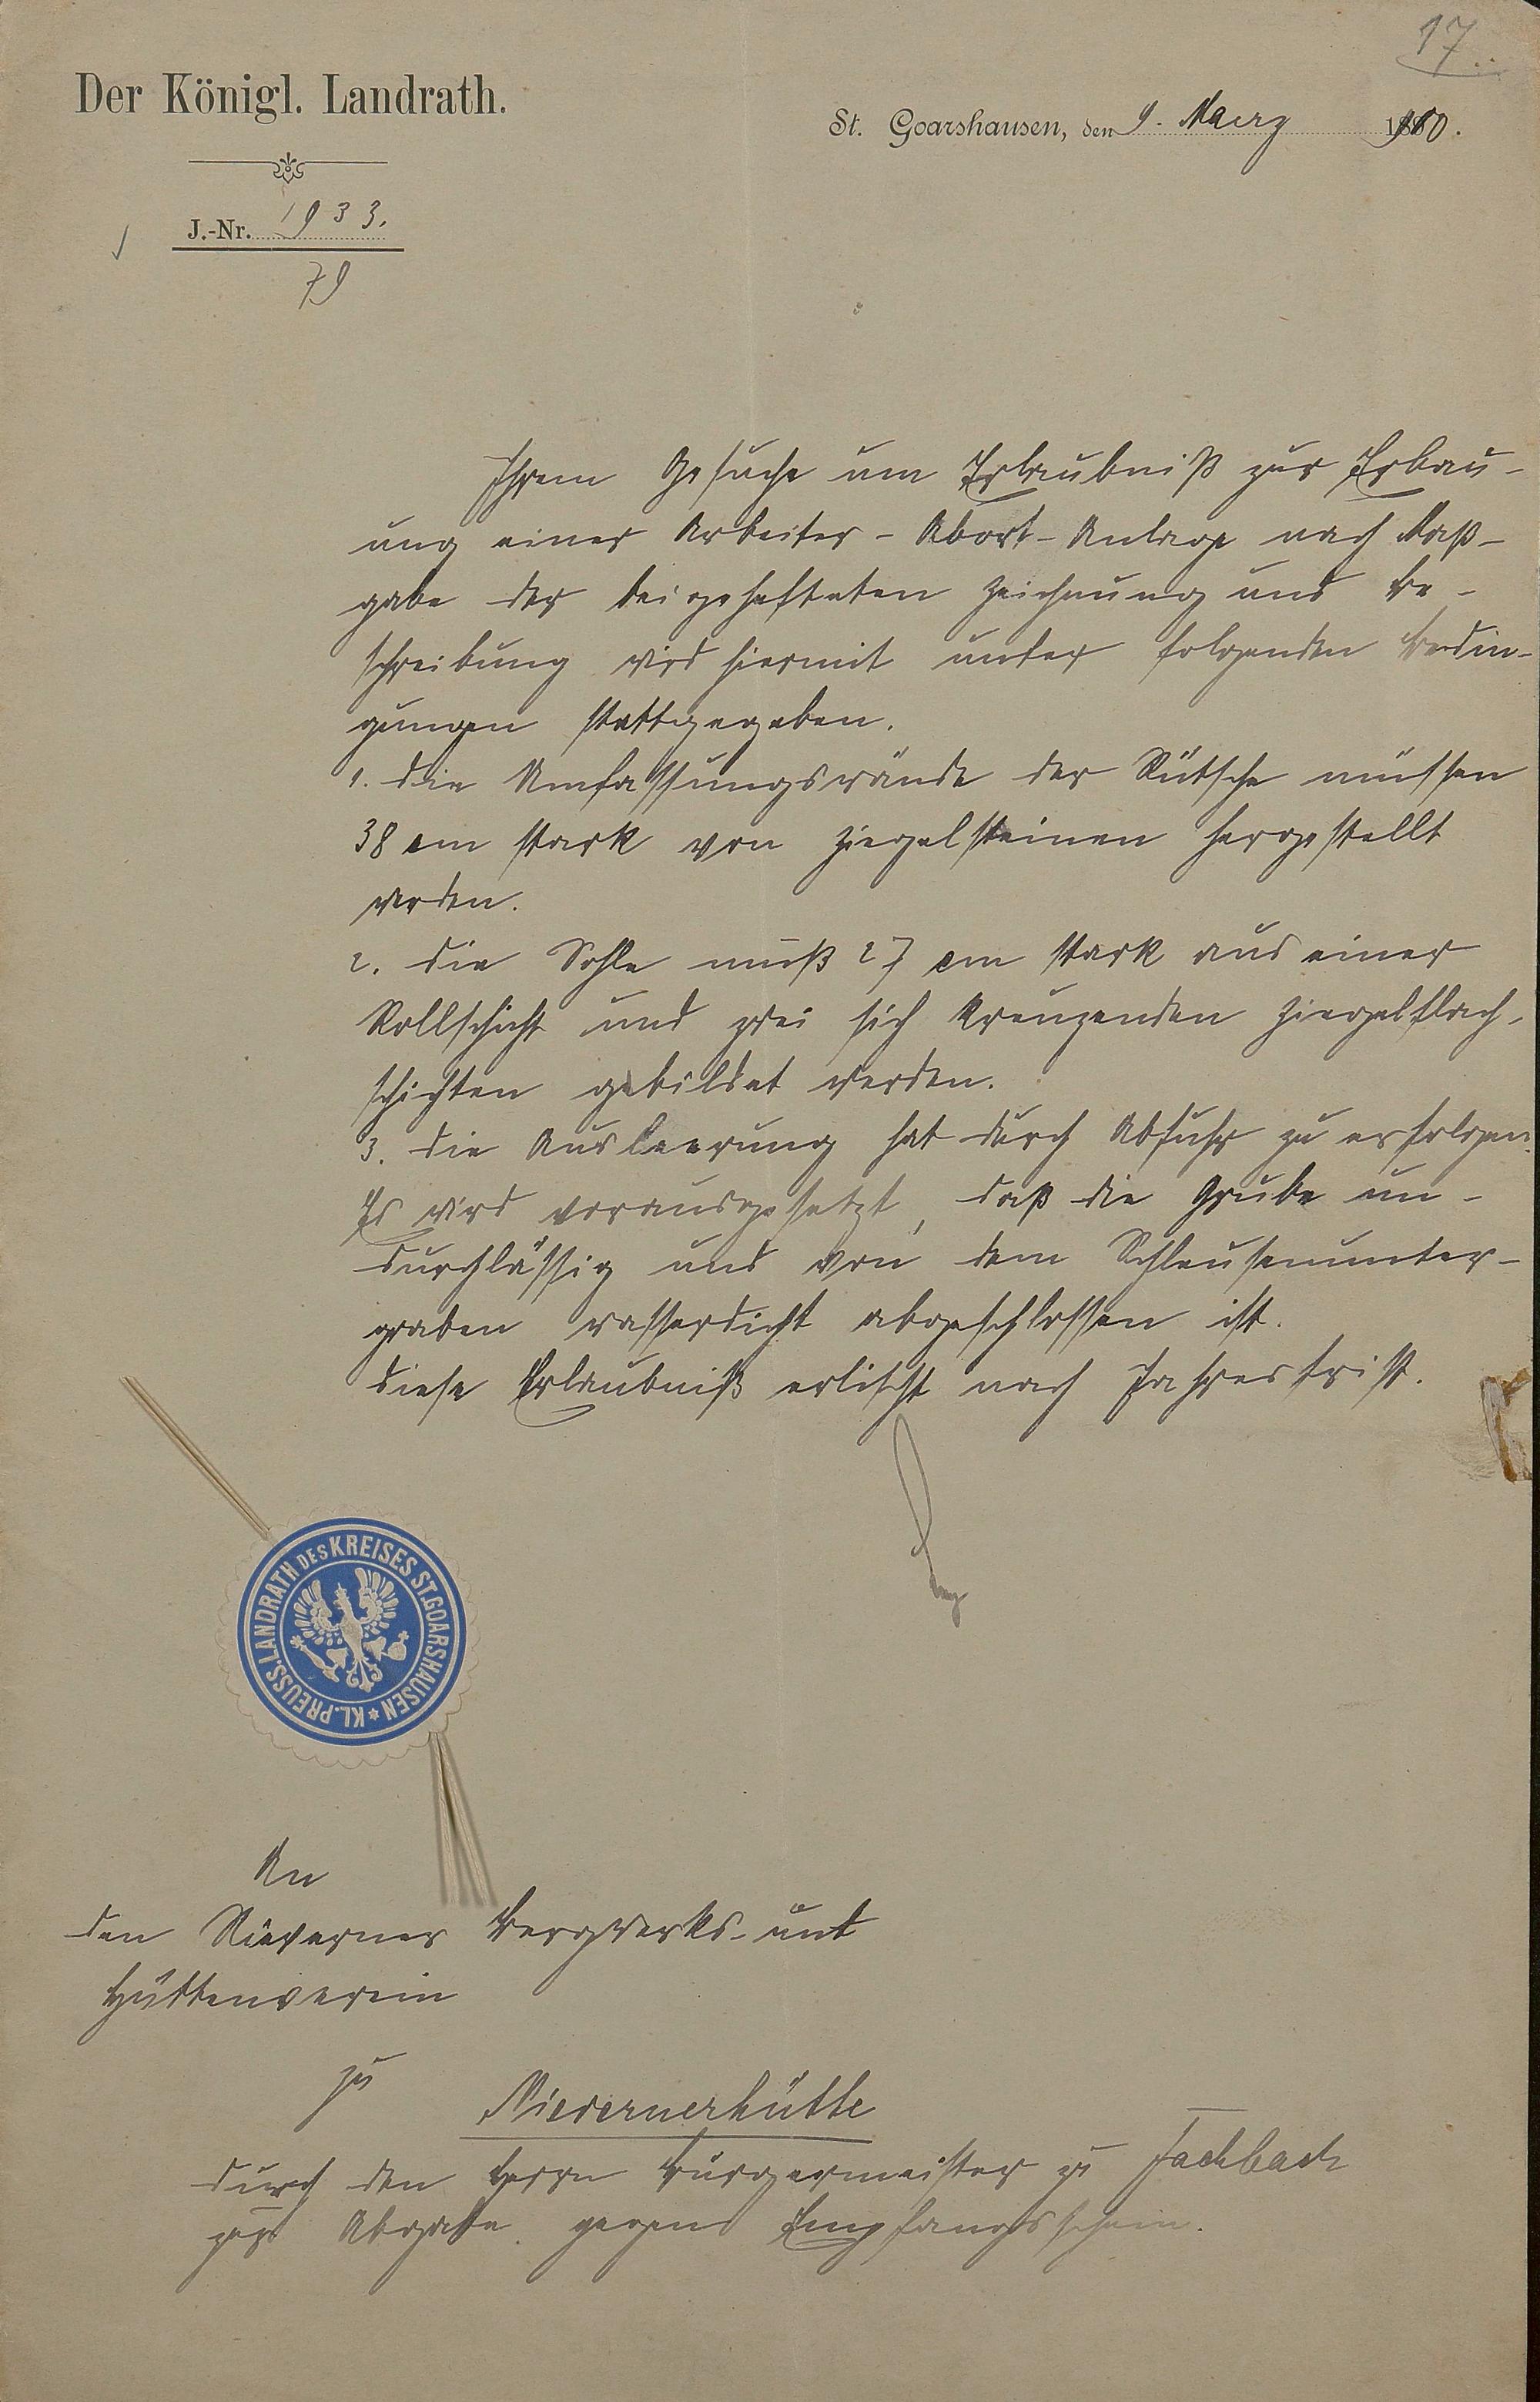 17
Der Königl. Landrath.
St. Goarshausen, den 9. Maerz
J.-Nr. 1933.
79
Ihrem Gesuche um Erlaubniß zur Erbau-
ung einer Arbeiter-Abort-Anlage nach Maß-
gabe der beigehefteten Zeichnung und Be-
schreibung wird hiermit unter folgenden Bedin-
gungen stattgegeben.
1. die Umfassungswände der Rütsche müssen
38 cm stark von Ziegelsteinen hergestellt
werden.
2. die Sohle muß 27 cm stark aus einer
Rollschicht und zwei sich kreuzenden Ziegelflach-
schichten gebildet werden.
3. die Ausleerung hat durch Abfuhr zu erfolgen.
Es wird vorausgesetzt, daß die Grube un-
durchlässig und von dem Schleusenunter-
graben wasserdicht abgeschlossen ist.
diese Erlaubniß erlischt nach Jahresfrist.
KL. PREUSS. LANDRATH DES KREISES ST. GOARSHAUSEN *
An
den Nieverner Bergwerks- und
Hüttenverein
zu
Nievernerhütte
durch den Herrn Bürgermeister zu Fachbach
Abgabe gegen Empfangsschein.